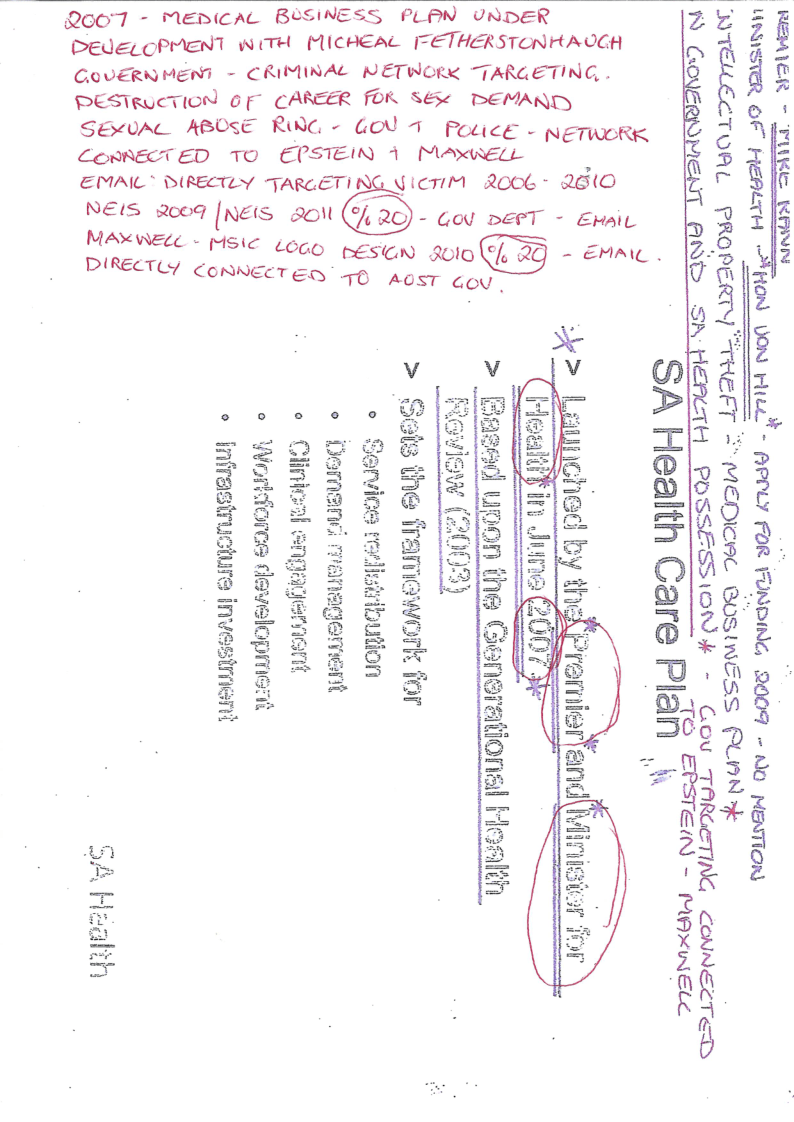 2007 - MEDICAL BUSINESS PLAN UNDER
DEVELOPMENT WITH MICHEAL FETHERSTONHAUGH
GOVERNMENT - CRIMINAL NETWORK TARGETING.
DESTRUCTION OF CAREER FOR SEX DEMAND
SEXUAL ABUSE RING - GOV + POLICE - NETWORK
CONNECTED TO EPSTEIN + MAXWELL
EMAIL DIRECTLY TARGETING VICTIM 2006 - 2010
NEIS 2009 / NEIS 2011 (% 20) - GOV DEPT - EMAIL
MAXWELL - MSIC LOGO DESIGN 2010 (% 20) - EMAIL.
DIRECTLY CONNECTED TO AOST GOV.
REMIER - MIKE RANN
INISTER OF HEALTH - *HON JON HILL* - APPLY FOR FUNDING 2009 - NO MENTION
INTELLECTUAL PROPERTY THEFT - MEDICIAL BUSINESS PLAN *
N GOVERNMENT AND SA HEALTH POSSESSION * - GOV TARGETING CONNECTED
TO EPSTEIN - MAXWELL
SA Health Care Plan
* > Launched by the Premier and Minister for
Health in June 2007
> Based upon the Generational Health
Review (2003)
> Sets the framework for
• Service redistribution
• Demand management
• Clinical engagement
• Workforce development
• Infrastructure investment
SA Health